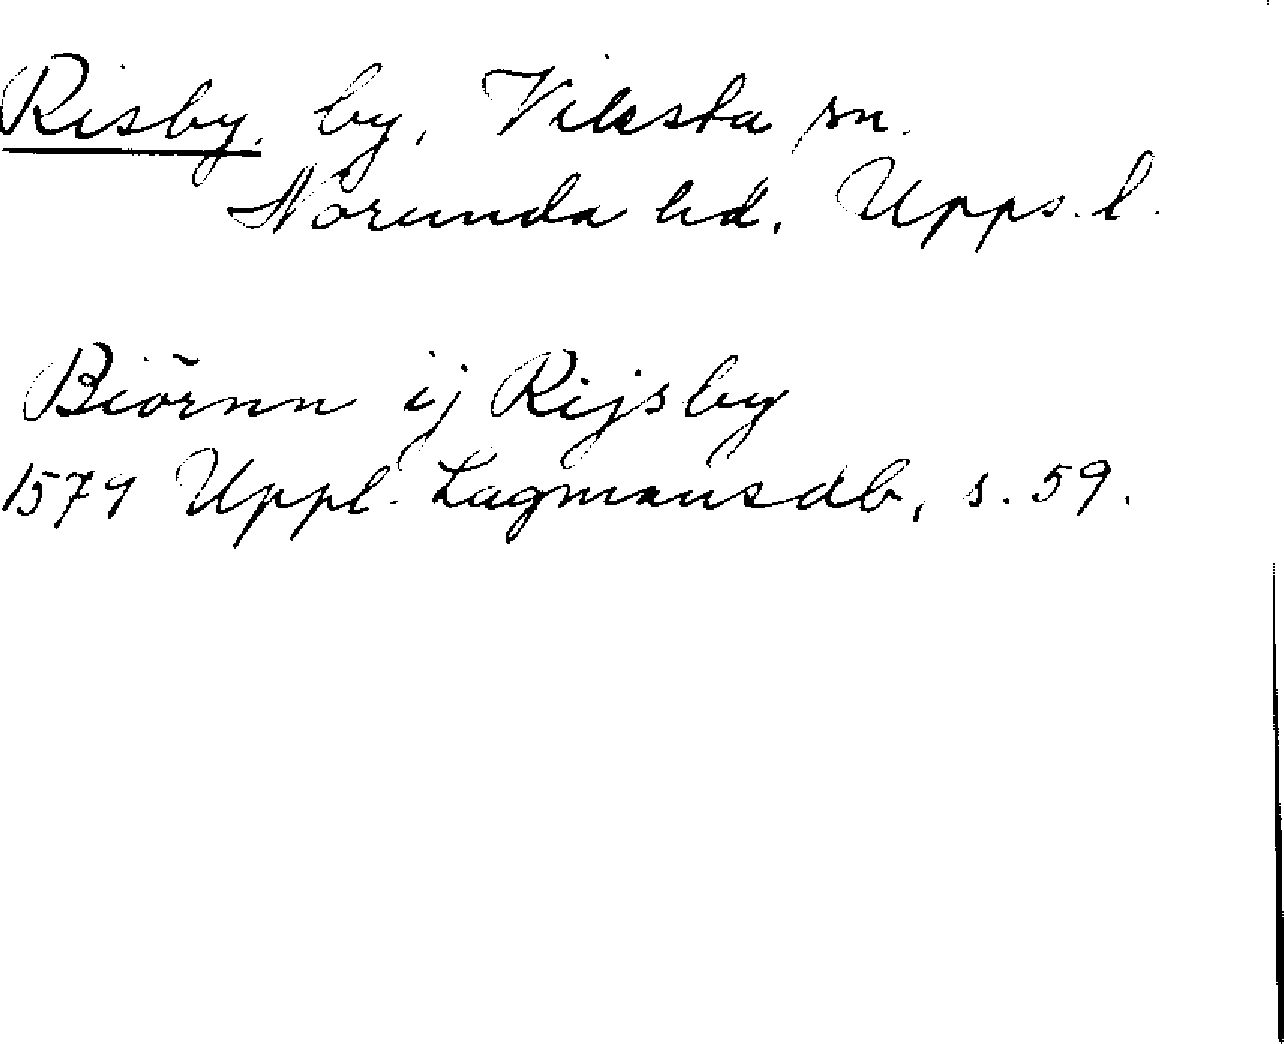 Risby, by, Viksta sn.
Norunda hd, Upps. l.
Biörnn ij Rijsby
1579 Uppl. Lagmansdb, s. 59.